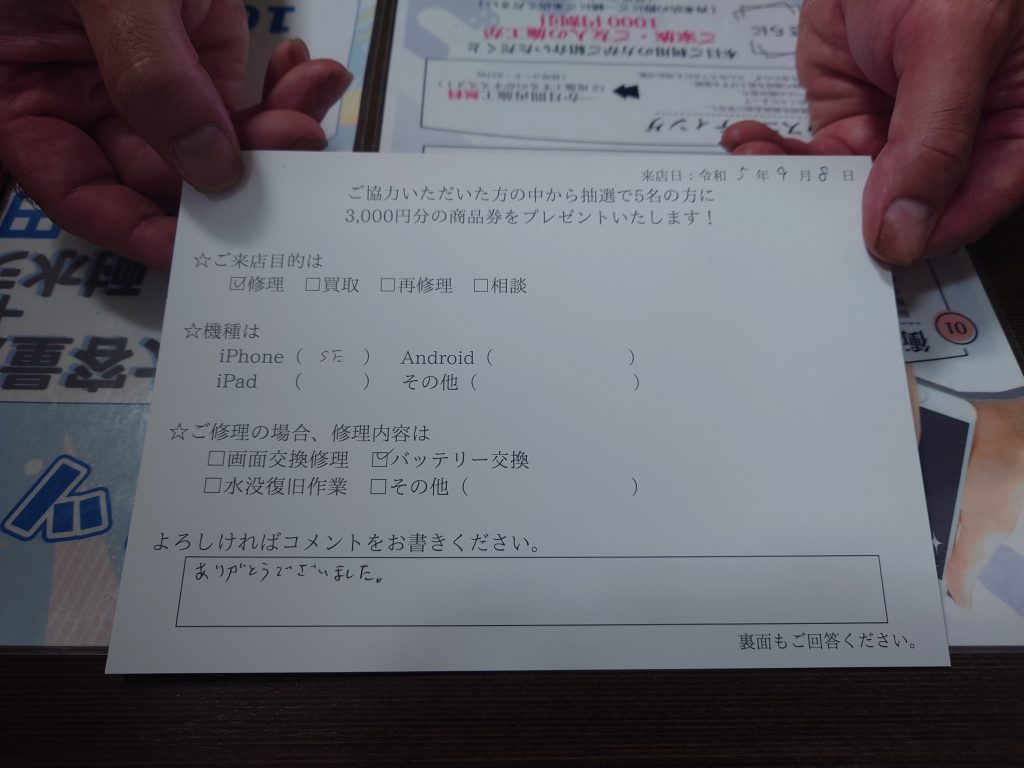 来店日：令和 5 年 9 月 8 日
ご協力いただいた方の中から抽選で5名の方に
3,000円分の商品券をプレゼントいたします！
☆ご来店目的は
☑修理 □買取 □再修理 □相談
☆機種は
iPhone（ SE ） Android（ ）
iPad （ ） その他（ ）
☆ご修理の場合、修理内容は
□画面交換修理 ☑バッテリー交換
□水没復旧作業 □その他（ ）
よろしければコメントをお書きください。
ありがとうございました。
裏面もご回答ください。
本日ご利用の方がご紹介いただくと
ご家族・ご友人の施工が
1000円割引
01